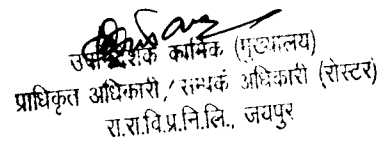 उप निदेशक कार्मिक (मुख्यालय)
प्राधिकृत अधिकारी/सम्पर्क अधिकारी (रोस्टर)
रा.रा.वि.प्र.नि.लि., जयपुर